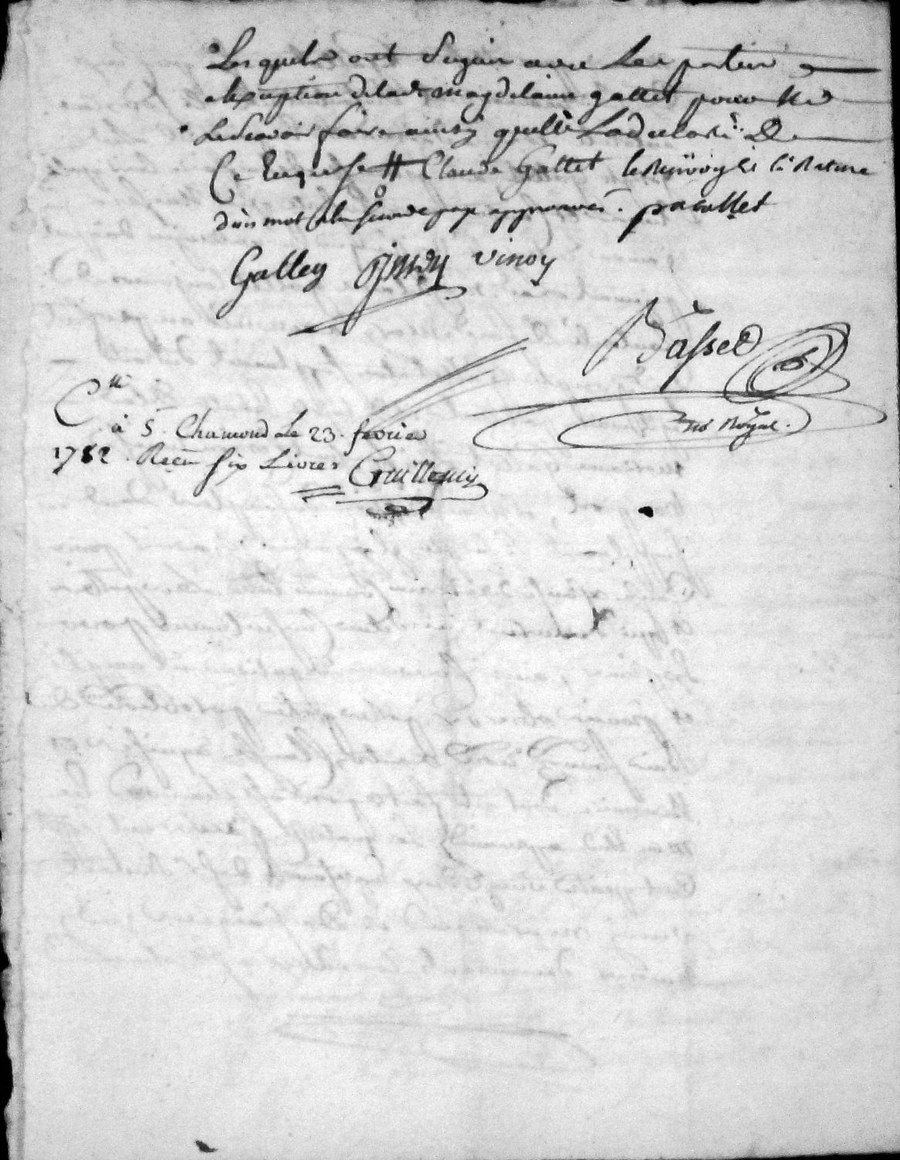 Lesquels ont Signé avec Les parties
alexception delade magdelaine gallet pour Ne
Le Scavoir faire ainsi quelle La declaré De
Ce Enquise # Claude Gallet le Renvoy & la Rature
dun mot a la page approuvés. pacallet
Galley vinoy
Basset
no Royal.
C
à S. Chamond Le 23. fevrier
1782. Recu six Livres Guillemin